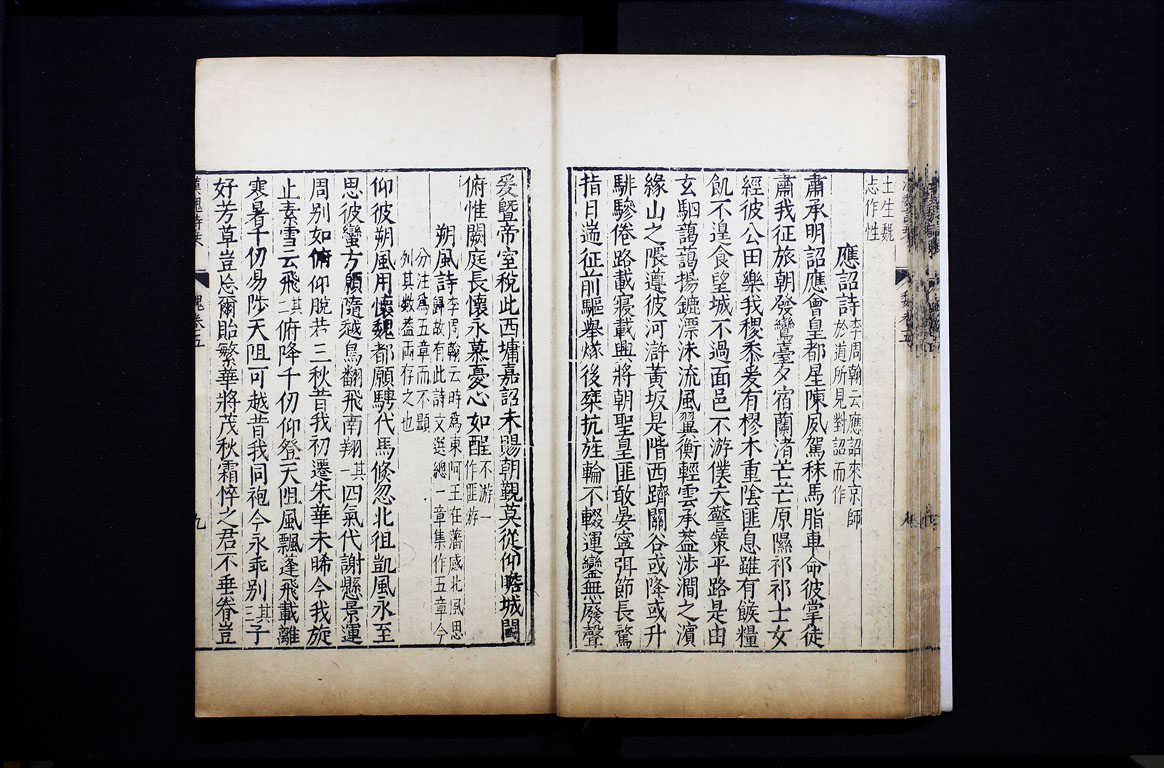 土生魏
志作性
應詔詩李周翰云應詔來京師
於道所見對詔而作
肅承明詔應會皇都星陳夙駕秣馬脂車命彼掌徒
肅我征旅朝發鸞臺夕宿蘭渚芒芒原隰祁祁士女
經彼公田樂我稷黍爰有樛木重陰匪息雖有餱糧
飢不遑食望城不過面邑不游僕夫警策平路是由
玄駟藹藹揚鑣漂沫流風翼衡輕雲承葢涉澗之濵
緣山之隈遵彼河滸黃坂是階西躋關谷或降或升
騑驂倦路載寢載興將朝聖皇匪敢晏寧弭節長騖
指日遄征前驅舉燧後乗抗旌輪不輟運鑾無廢聲
爰曁帝室稅此西墉嘉詔未賜朝覲莫從仰瞻城閾
俯惟闕庭長懷永慕憂心如酲不游一
作匪游
朔風詩李周翰云時為東阿王在藩感北風思
歸故有此詩文選總一章集作五章今
分注為五章而不顯
列其數葢兩存之也
仰彼朔風用懷魏都願騁代馬倐忽北徂凱風永至
思彼蠻方願隨越鳥翻飛南翔其
一四氣代謝懸景運
周别如俯仰脫若三秋昔我初遷朱華未晞今我旋
止素雪云飛其
二俯降千仞仰登天阻風飄蓬飛載離
寒暑千仞易陟天阻可越昔我同袍今永乖别其
三子
好芳草豈忘爾貽繁華將茂秋霜悴之君不垂眷豈
魏卷五
九